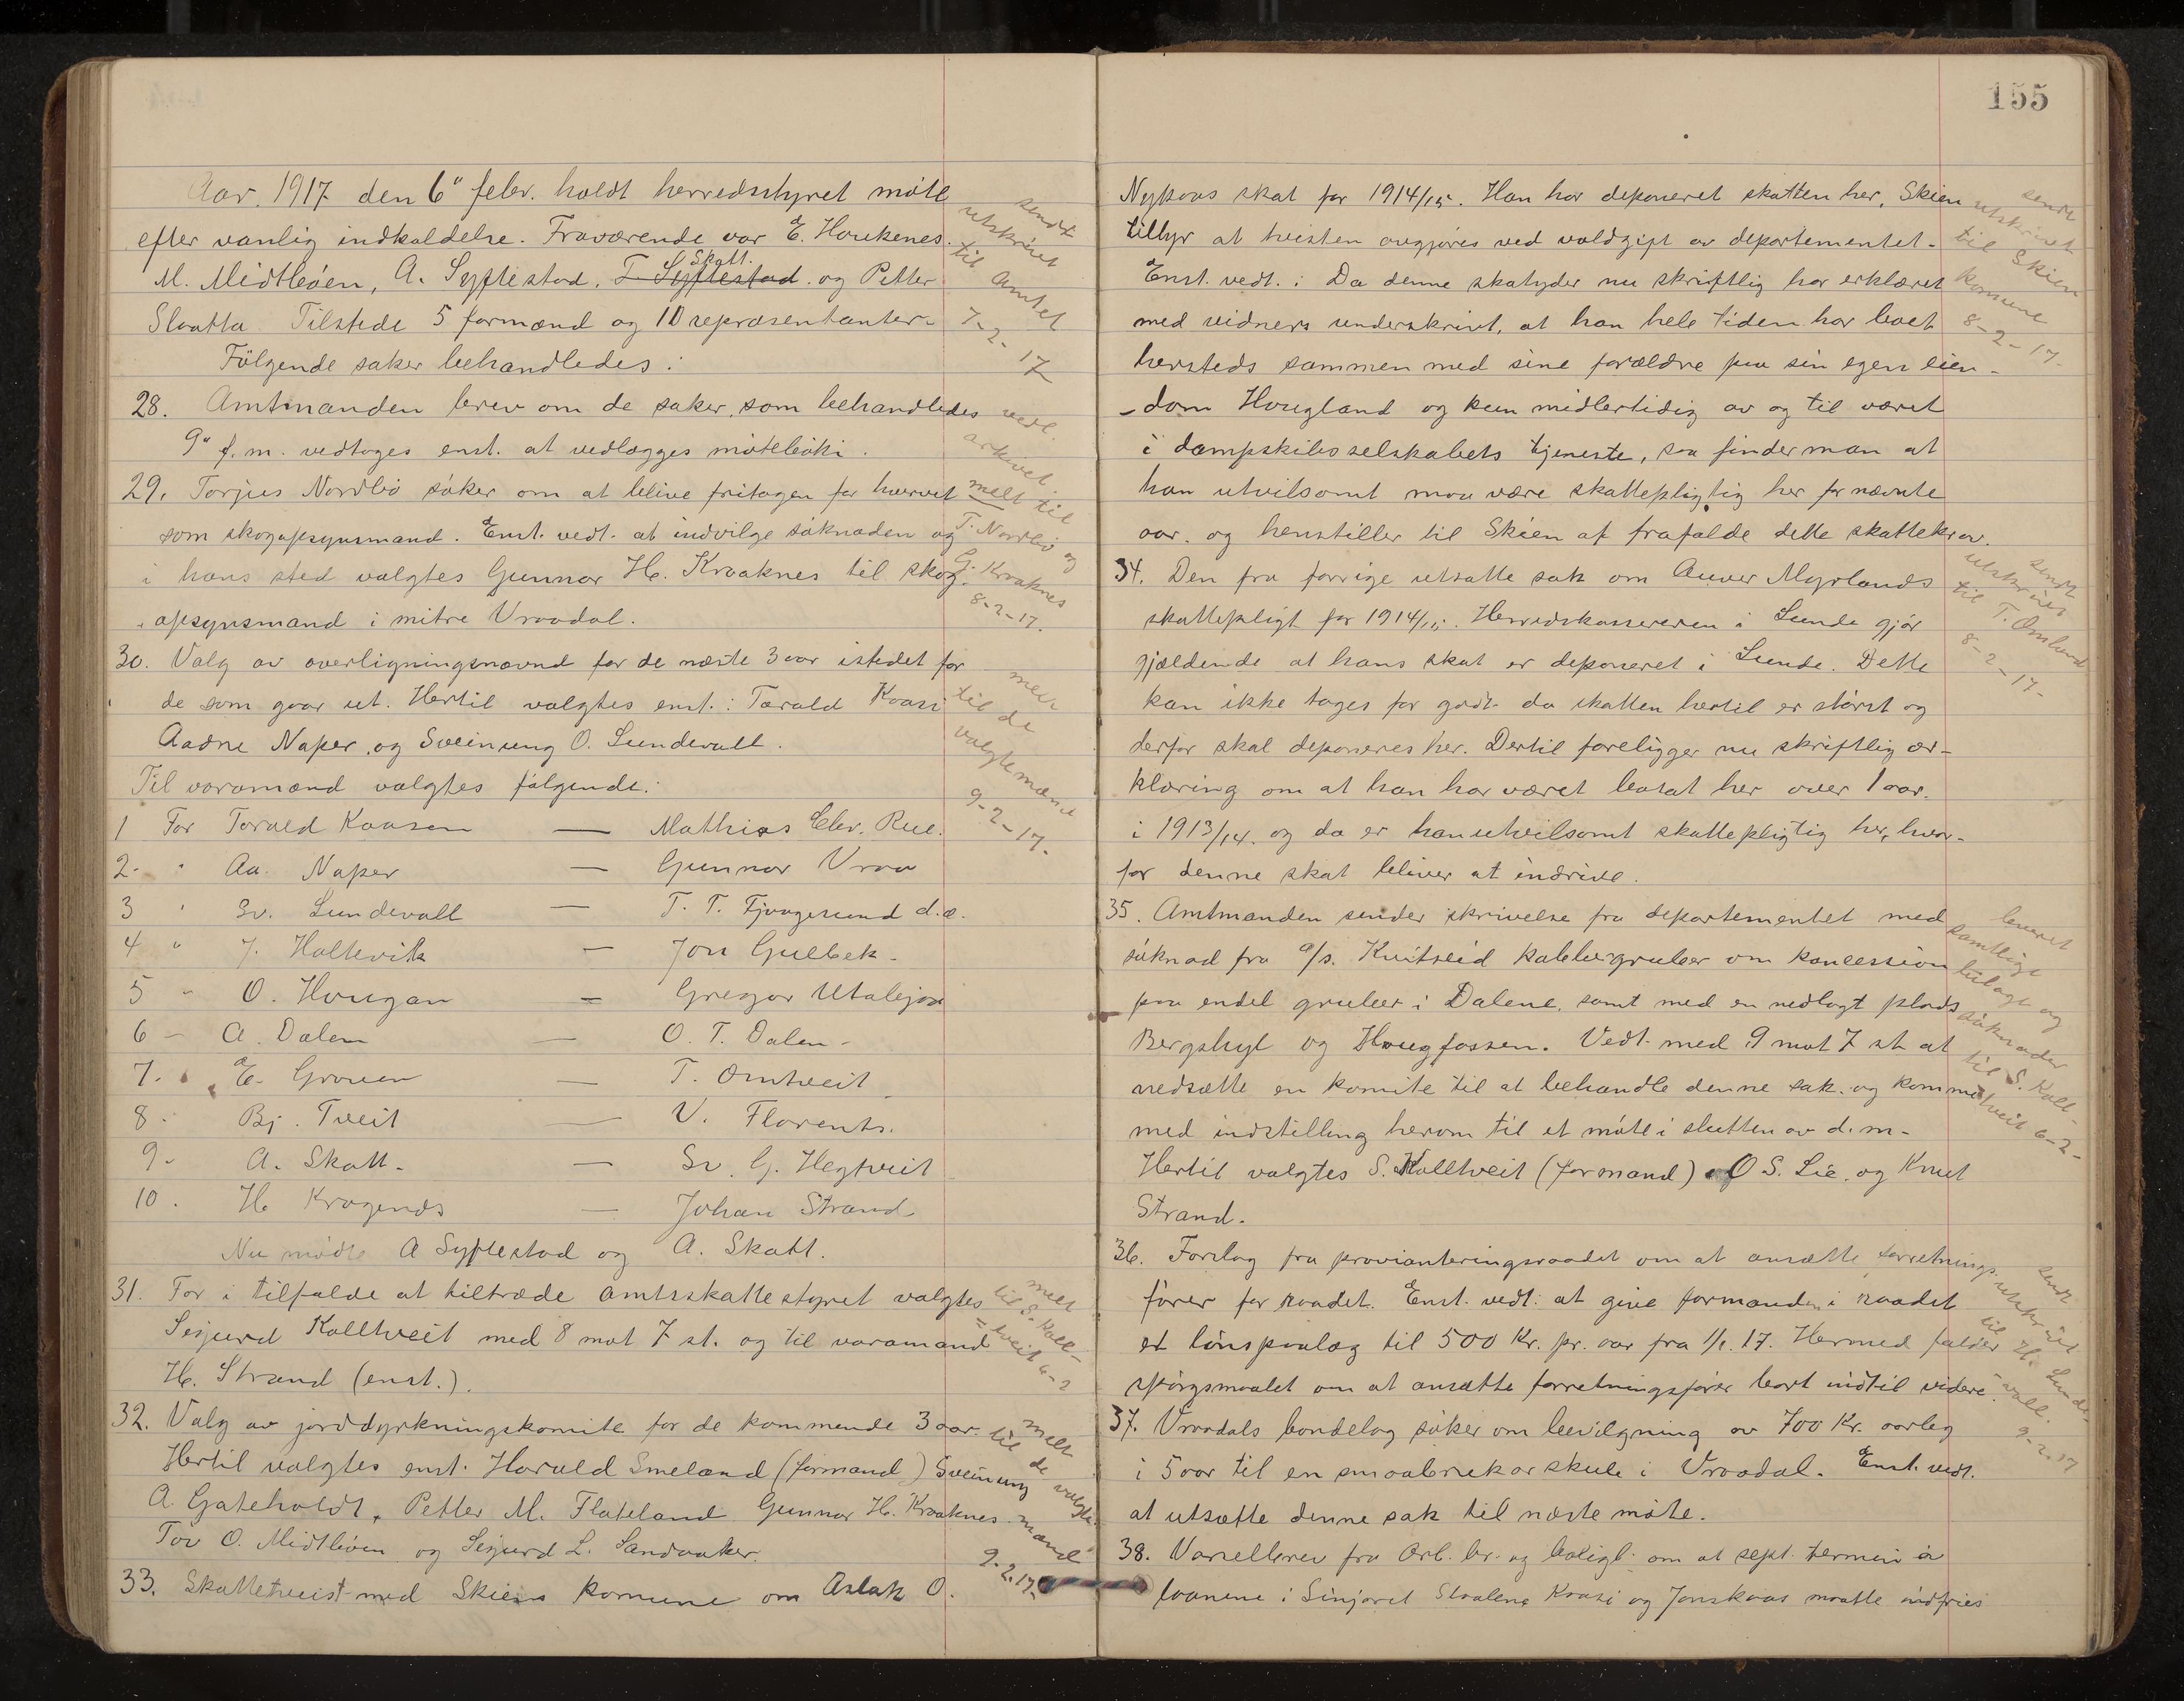 Aar. 1917 den 6" febr. holdt herredsstyret møte
efter vanlig indkaldelse. Fraværende var E. Haukenes.
M. Midtbøen, A. Syftestad, T. Syftestad Skatt. og Petter
Slaatta. Tilstede 5 formænd og 10 repræsentanter.
Følgende saker behandledes:
28. Amtmanden brev om de saker, som behandledes
9" f. m. vedtoges enst. at vedlægges møteboki.
29. Torjus Nordbø søker om at blive fritagen for hvervet
som skogopsynsmand. Enst. vedt. at indvilge søknaden og
i hans sted valgtes Gunnar H. Kraaknes til skog-
opsynsmand i mitre Vraadal.
30. Valg av overligningsnævnd for de næste 3 aar istedet for
de som gaar ut. Hertil valgtes enst.: Tarald Kaasi
Aadne Naper, og Sveinung O. Lundevall.
Til varamænd valgtes følgende:
1 For Tarald Kaasen — Mathias Elev. Rue.
2. " Aa. Naper — Gunnar Vraa
3 " Sv. Lundevall — T. T. Fjaagesund d.æ.
4 " J. Holtevik — Jon Gulbek.
5 " O. Haugan — Gregar Utalejon
6 - A. Dalen — O. T. Dalen.
7. E. Groven — T. Omtveit
8. Bj. Tveit — V. Florents.
9. A. Skatt. — Sv. G. Hegtveit
10. H. Kragenæs — Johan Strand
Nu mødte A Syftestad og A. Skatt.
31. For i tilfælde at tiltræde amtsskattestyret valgtes
Sigurd Kolltveit med 8 mot 7 st. og til varamand
H. Strand (enst.).
32. Valg av jorddyrkningskomite for de kommende 3 aar.
Hertil valgtes enst. Harald Smeland (formand) Sveinung
A. Gateholdt, Petter M. Flateland Gunnar H. Kraaknes
Tov O. Midtbøen og Sigurd L. Sandaaker.
33. Skattetvist med Skiens komune om Aslak O.
sendt
utskrivet
til Amtet
7-2-17
vedl.
arkivet.
melt til
T. Nordbø og
G. Kraaknes
8-2-17.
melt
til de
valgte mænd
9-2-17.
melt
til S. Koll-
=tveit 6-2
melt
til de valgte
mænd
9.2.17-
155
Nykaas skat for 1914/15. Han har deponeret skatten her, Skien
tilbyr at tvisten avgjøres ved voldgift av departementet.
Enst. vedt.: Da denne skatyder nu skriftlig har erklæret
med vidners underskrivt, at han hele tiden har boet
hersteds sammen med sine forældre paa sin egen eien-
-dom Haugland og kun midlertidig av og til været
i dampskibsselskabets tjeneste, saa finder man at
han utvilsomt maa være skattepligtig her for nævnte
aar. og henstiller til Skien at frafalde dette skattekrav.
34. Den fra forrige utsatte sak om Anver Myrlands
skattepligt for 1914/15. Herredskassereren i Lunde gjør
gjældende at hans skat er deponeret i Lunde. Dette
kan ikke tages for godt da skatten hertil er størst og
derfor skal deponeres her. Dertil foreligger nu skriftlig er-
klæring om at han har været bosat her over 1 aar.
i 1913/14. og da er han utvilsomt skattepligtig her, hvor-
for denne skat bliver at indrive.
35. Amtmanden sender skrivelse fra departementet med
søknad fra a/s. Kvitseid kobbergruber om koncession
paa endel gruber i Dalene, samt med en nedlagt plads
Bergshyl og Haugfossen. Vedt. med 9 mot 7 st at
nedsætte en komite til at behandle denne sak. og komme
med indstilling herom til et møte i slutten av d. m.
Hertil valgtes S. Kolltveit (formand) O S. Lie, og Knut
Strand.
36. Forslag fra provianteringsraadet om at ansætte forretnings-
fører for raadet. Enst. vedt. at give formanden i raadet
et lønspaalæg til 500 Kr. pr. aar fra 1/1. 17. Hermed falder
spørgsmaalet om at ansætte forretningsfører bort indtil videre.
37. Vraadals bondelag søker om bevilgning av 700 Kr. aarleg
i 5 aar til en smaabrukarskule i Vraadal. Enst. vedt.
at utsætte denne sak til næste møte.
38. Varselbrev fra Arb. br. og boligb. om at sept. termin å
laanene i Sinjaret Straalene Kaasi og Jonskaas maatte indfries
sendt
utskrivet
til Skien
komune
8-2-17.
sendt
utskrivt
til T. Omland
8-2-17-
leveret
samtlige
bilage og
søknader
til S. Koll-
tveit 6-2-
sendt
utskrivt
til H. Lunde-
-vall.
9-2.17